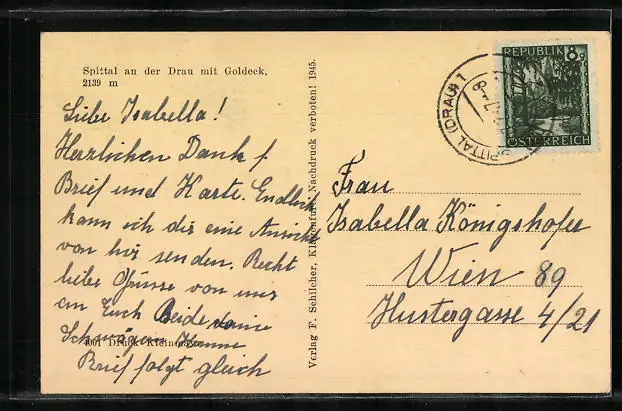 Spittal an der Drau mit Goldeck,
2139 m
Liebe Isabella!
Herzlichen Dank f
Brief und Karte. Endlich
kann ich dir eine Ansicht
von hir senden. Recht
liebe Grüsse von uns
an Euch Beide, deine
Schwägerin
Brief folgt gleich
Druck
Verlag F. Schilcher, Klagenfurt. Nachdruck verboten! 1945.
REPUBLIK 8g
ÖSTERREICH
SPITTAL (DRAU) 1
Frau
Isabella Königshofer
Wien 89
Hustergasse 4/21